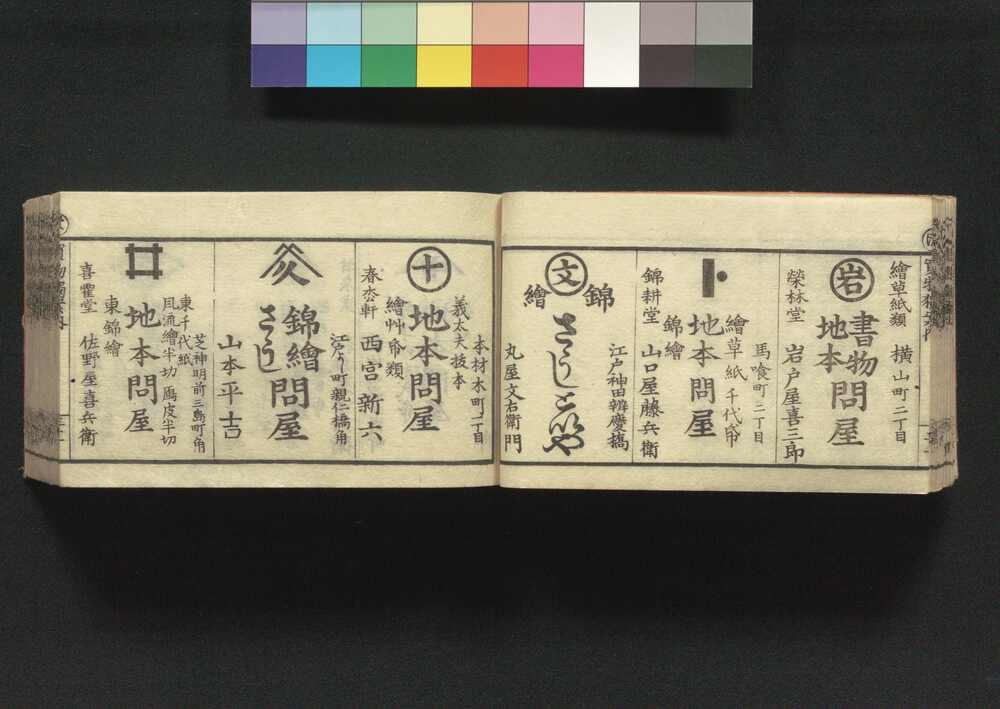 繪草紙類 横山町二丁目
岩
書物
地本
問屋
榮林堂 岩戸屋喜三郎
馬喰町二丁目
繪草紙 千代帋
地本問屋
錦繪
錦耕堂 山口屋藤兵衛
江戸神田辨慶橋
錦
文
繪
さうしといや
丸屋文右衛門
本材木町一丁目
義太夫抜本
十
地本問屋
繪艸帋類
西宮新六
江戸四日町親仁橋角
錦繪
さうし
問屋
山本平吉
芝神明前三島町角
東千代紙
地本問屋
風流繪半切 鳫皮半切
東錦繪
喜靏堂 佐野屋喜兵衛